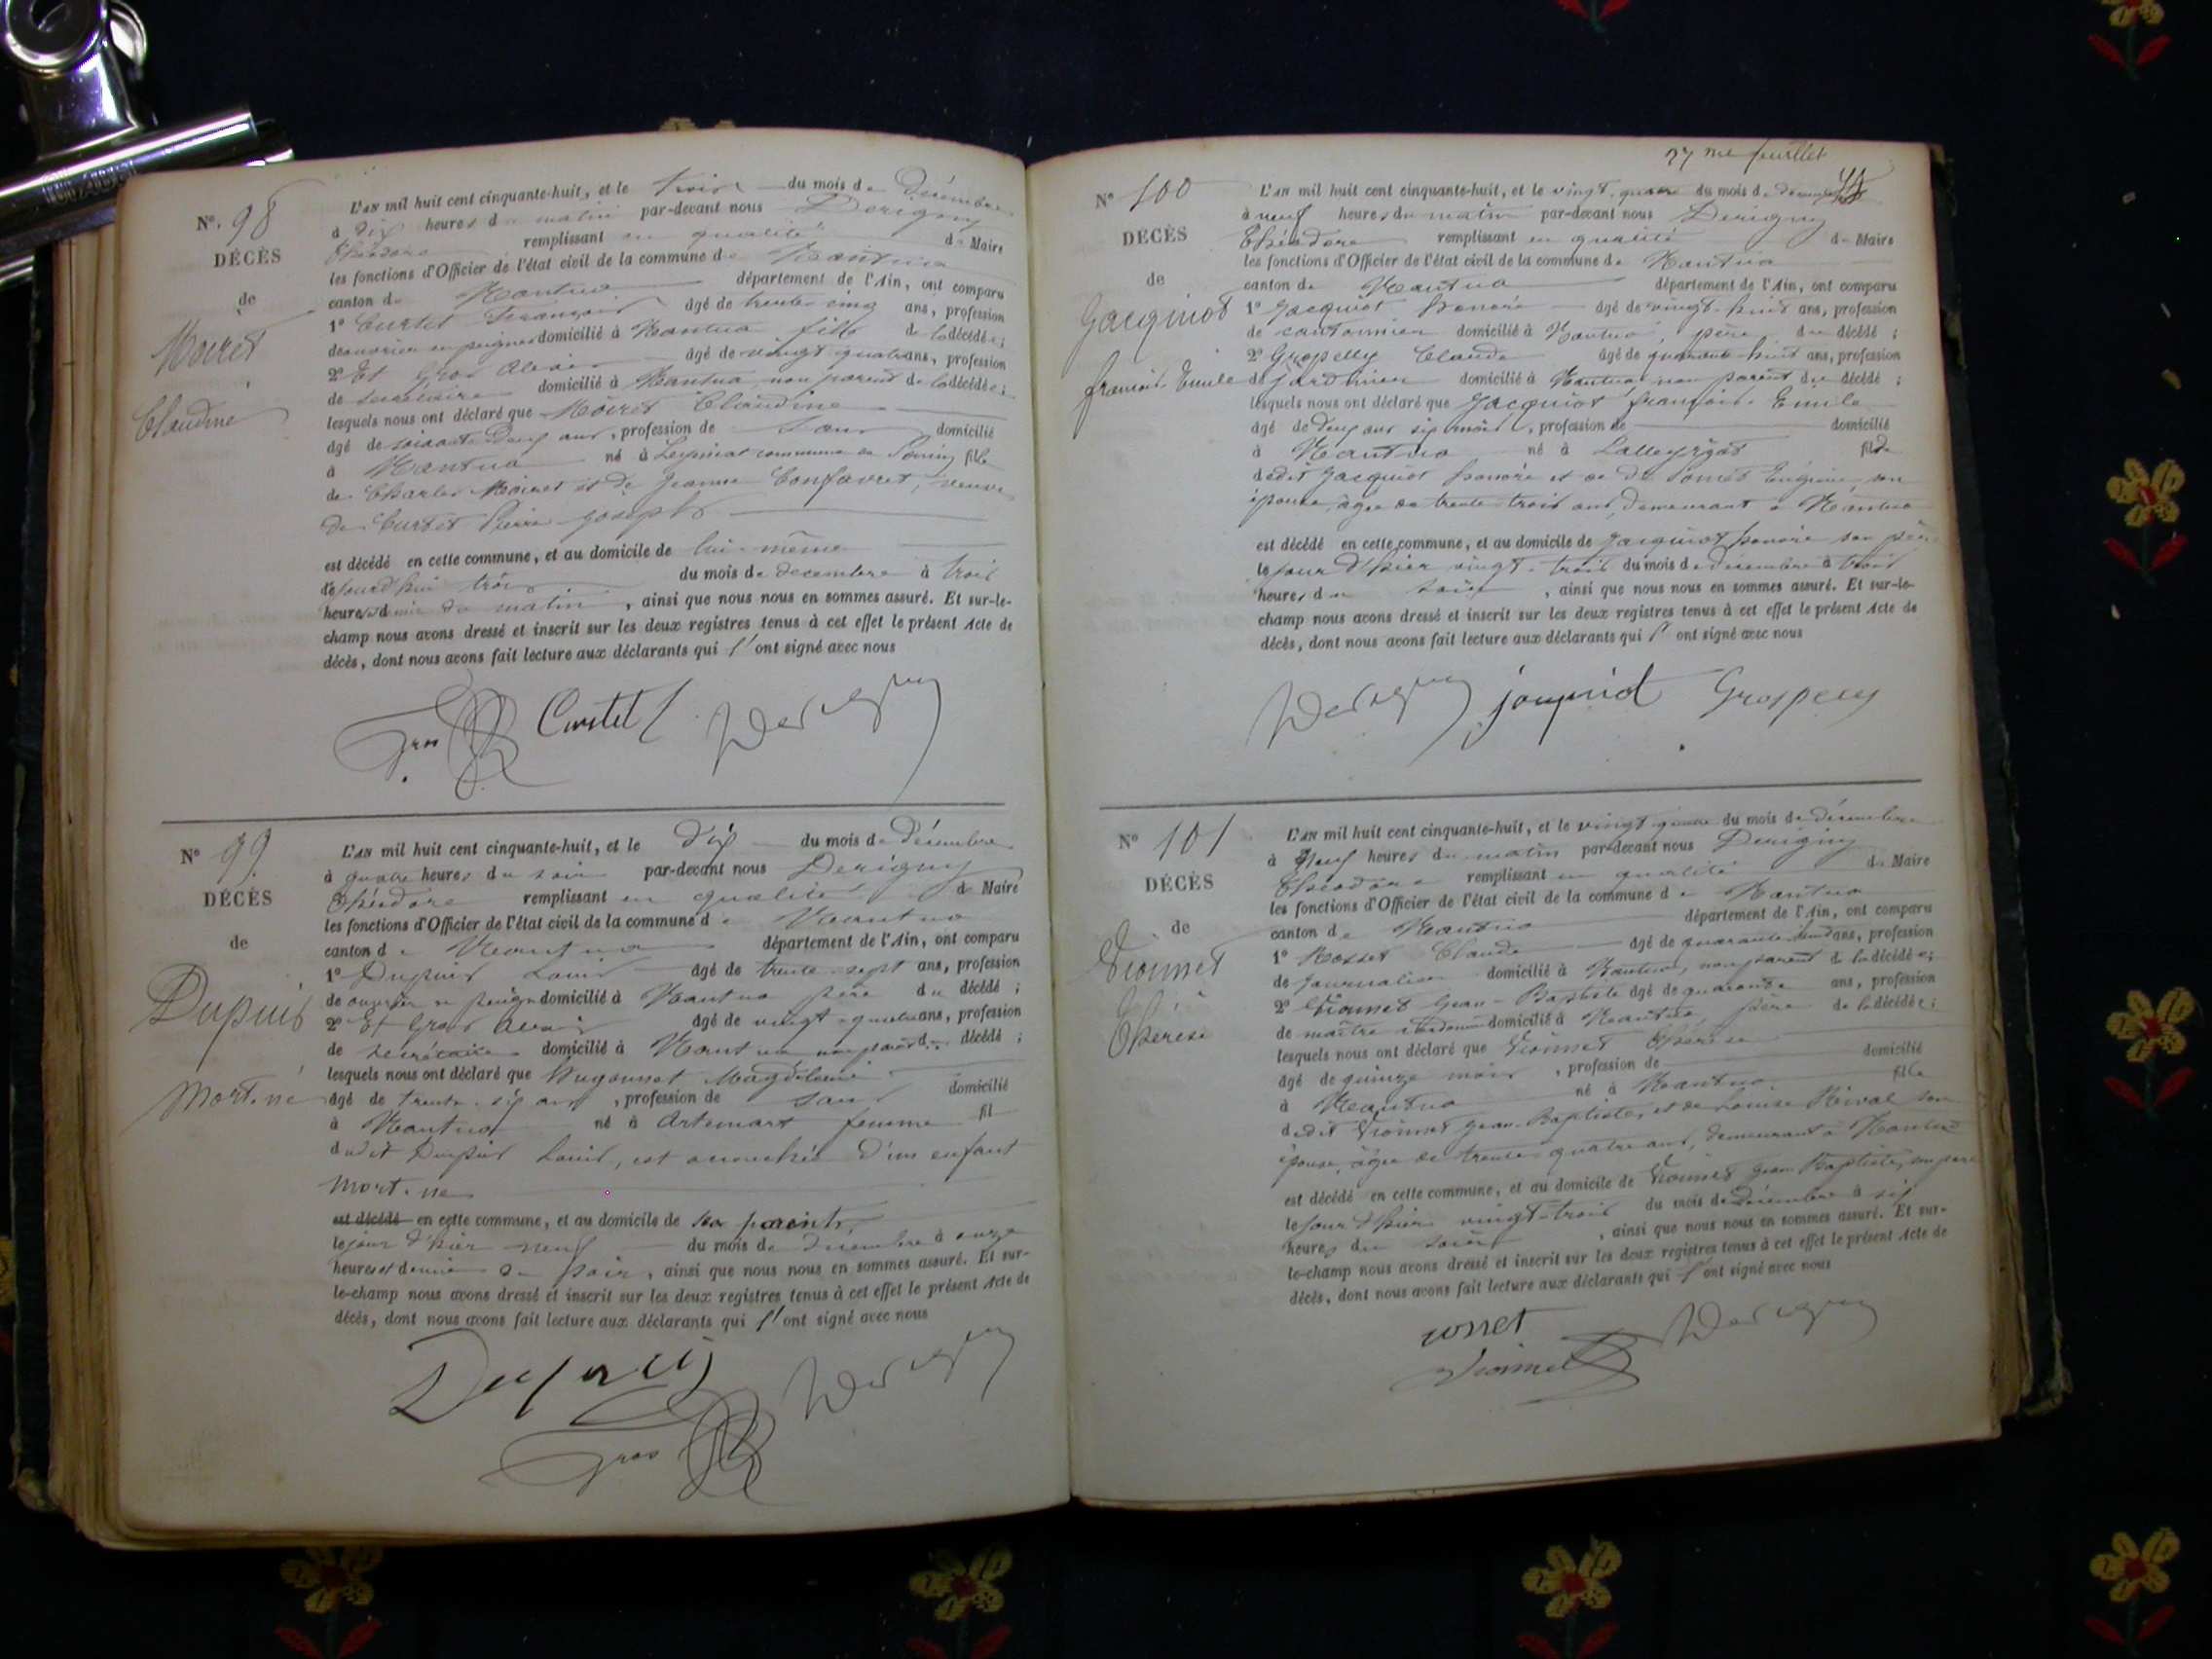 N°. 98
DÉCÈS
de
Moiret
Claudine
L'AN mil huit cent cinquante-huit, et le trois du mois de Décembre
à dix heures du matin par-devant nous Derigny
Théodore remplissant en qualité de Maire
les fonctions d'Officier de l'état civil de la commune de Nantua
canton de Nantua département de l'Ain, ont comparu
1° Curtet François âgé de trente cinq ans, profession
de ouvrier en peignes domicilié à Nantua fils de la décédée;
2° Et Gros Alexis âgé de vingt quatre ans, profession
de secrétaire domicilié à Nantua non parent de la décédée;
lesquels nous ont déclaré que Moiret Claudine
âgé de soixante Deux ans, profession de sans domicilié
à Nantua né à Leyssiat commune de fille
de Charles Moiret et de Jeanne Confavret, veuve
de Curtet Pierre Joseph
est décédé en cette commune, et au domicile de lui-même
le jourd'hui trois du mois de decembre à trois
heures et demie du matin, ainsi que nous nous en sommes assuré. Et sur-le-
champ nous avons dressé et inscrit sur les deux registres tenus à cet effet le présent Acte de
décès, dont nous avons fait lecture aux déclarants qui l'ont signé avec nous
Gros Curtet Derigny
N° 99
DÉCÈS
de
Dupuis
Mort-né
L'AN mil huit cent cinquante-huit, et le Dix du mois de Décembre
à quatre heures du soir par-devant nous Derigny
Théodore remplissant en qualité de Maire
les fonctions d'Officier de l'état civil de la commune de Nantua
canton de Nantua département de l'Ain, ont comparu
1° Dupuis Louis âgé de trente-sept ans, profession
de ouvrier en peigne domicilié à Nantua père du décédé;
2° Et Gros Alexis âgé de vingt-quatre ans, profession
de secrétaire domicilié à Nantua non parent du décédé;
lesquels nous ont déclaré que Hugonnet Magdeleine
âgé de trente-six ans, profession de sans domicilié
à Nantua né à Artemart femme fil
dudit Dupuis Louis, est accouchée d'un enfant
Mort-né
est décédé en cette commune, et au domicile de ses parents
le jour d'hier neuf du mois de décembre à onze
heures et demie du soir, ainsi que nous nous en sommes assuré. Et sur-
le-champ nous avons dressé et inscrit sur les deux registres tenus à cet effet le présent Acte de
décès, dont nous avons fait lecture aux déclarants qui l'ont signé avec nous
Dupuis Derigny
Gros
27 me feuillet
N° 100
DÉCÈS
de
Jacquiot
françois Emile
L'AN mil huit cent cinquante-huit, et le vingt-quatre du mois de décembre
à neuf heures du matin par-devant nous Derigny
Théodore remplissant en qualité de Maire
les fonctions d'Officier de l'état civil de la commune de Nantua
canton de Nantua département de l'Ain, ont comparu
1° Jacquiot honoré âgé de vingt-huit ans, profession
de cantonnier domicilié à Nantua, père du décédé;
2° Grospelly Claude âgé de quarante-huit ans, profession
de jardinier domicilié à Nantua non parent du décédé;
lesquels nous ont déclaré que Jacquiot françois Emile
âgé de deux ans six mois, profession de domicilié
à Nantua né à Lalleyriat fils de
dudit Jacquiot honoré et de Eugénie, son
épouse, âgée de trente-trois ans, demeurant à Nantua
est décédé en cette commune, et au domicile de Jacquiot honoré son père
le jour d'hier vingt-trois du mois de décembre à trois
heures du soir, ainsi que nous nous en sommes assuré. Et sur-le-
champ nous avons dressé et inscrit sur les deux registres tenus à cet effet le présent Acte de
décès, dont nous avons fait lecture aux déclarants qui l'ont signé avec nous
Derigny jacquiot Grospelly
N° 101
DÉCÈS
de
Vionnet
Thérèse
L'AN mil huit cent cinquante-huit, et le vingt-quatre du mois de décembre
à Neuf heures du matin par-devant nous Derigny
Théodore remplissant en qualité de Maire
les fonctions d'Officier de l'état civil de la commune de Nantua
canton de Nantua département de l'Ain, ont comparu
1° Rosset Claude âgé de quarante ans, profession
de journalier domicilié à Nantua, non parent de la décédée;
2° Vionnet Jean-Baptiste âgé de quarante ans, profession
de maître cordonnier domicilié à Nantua père de la décédée;
lesquels nous ont déclaré que Vionnet Thérèse
âgé de quinze mois, profession de domicilié
à Nantua né à Nantua fille
dudit Vionnet Jean-Baptiste, et de Louise Rival son
épouse, âgée de trente-quatre ans, demeurant à Nantua
est décédé en cette commune, et au domicile de Vionnet Jean Baptiste, son père
le jour d'hier vingt-trois du mois de décembre à six
heures du soir, ainsi que nous nous en sommes assuré. Et sur-
le-champ nous avons dressé et inscrit sur les deux registres tenus à cet effet le présent Acte de
décès, dont nous avons fait lecture aux déclarants qui l'ont signé avec nous
Derigny
Vionnet